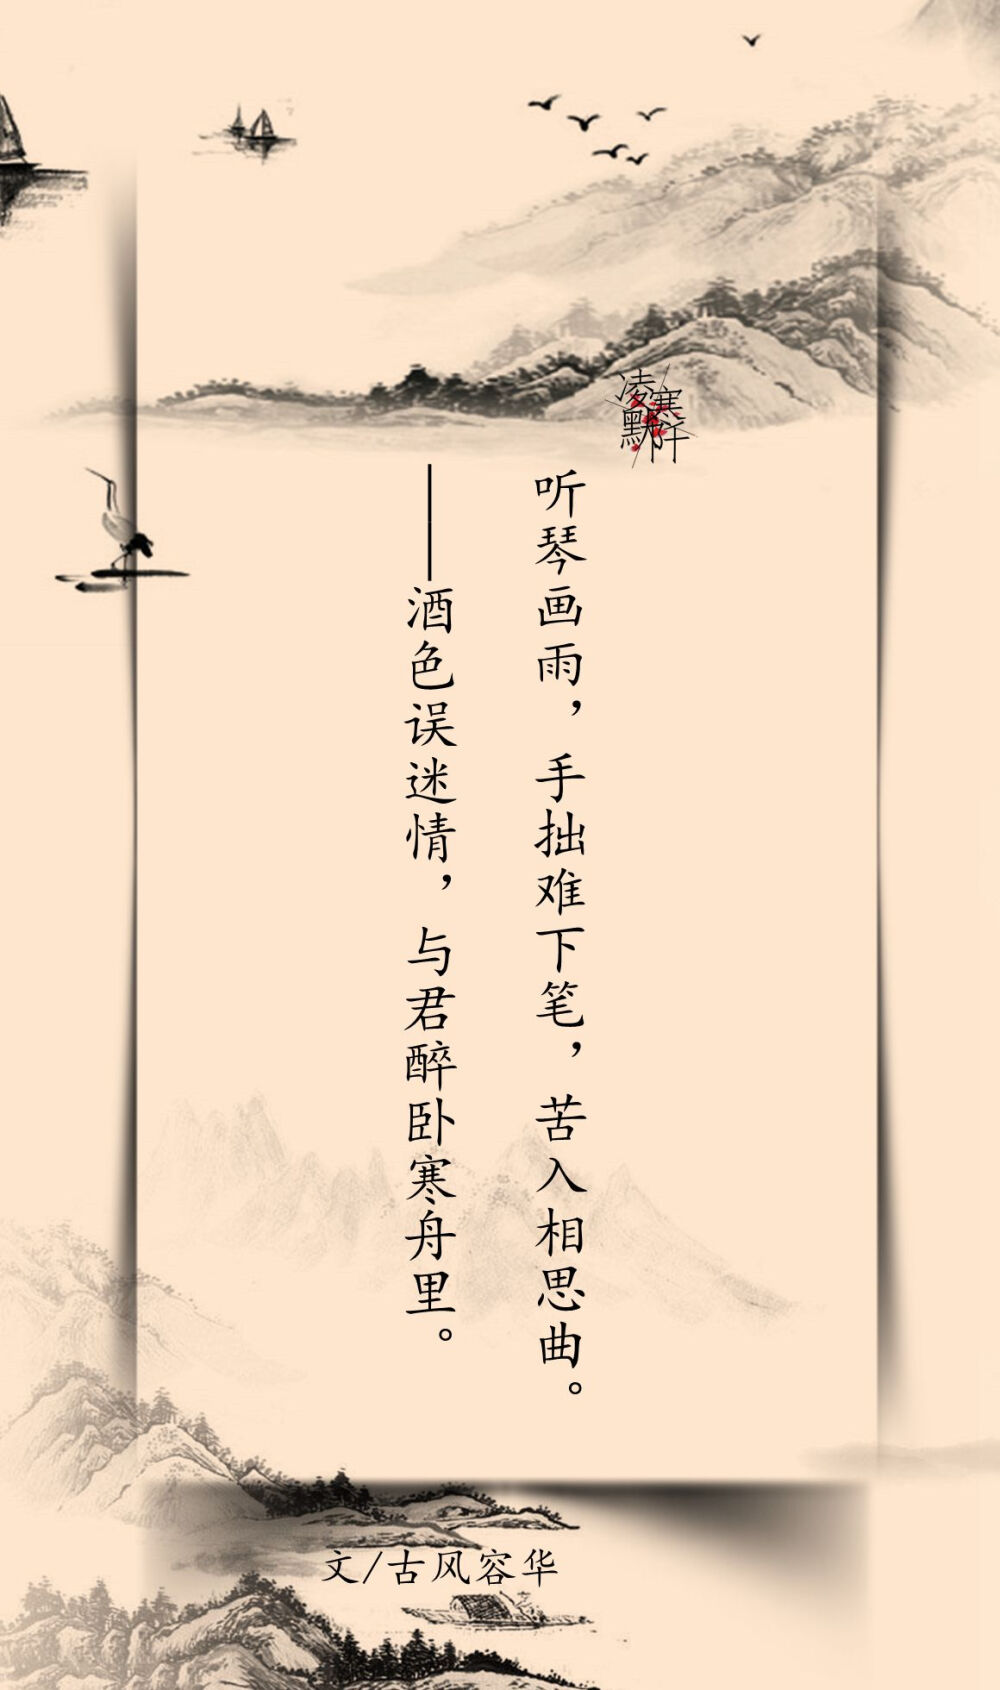 听琴画雨，手拙难下笔，苦入相思曲。
——酒色误迷情，与君醉卧寒舟里。
文/古风容华